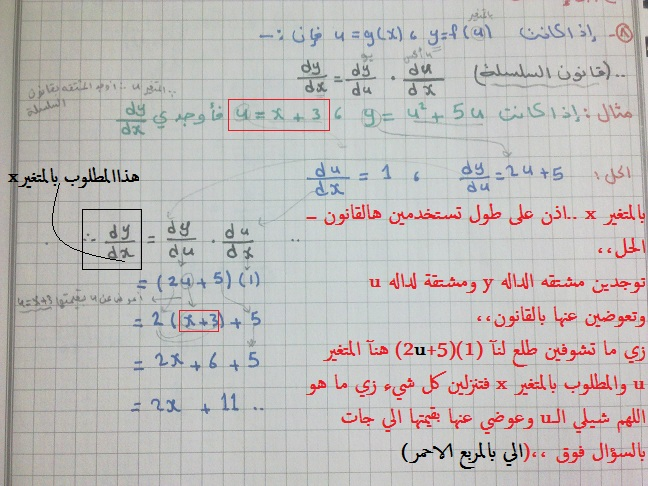 ٨- إذا كانت y=f(u) ، u=g(x) فإن :-
بالمتغير
(قانون السلسلة) dy/dx = dy/du · du/dx
السلسلة
مثال : إذا كانت y = u² + 5u ، u = x + 3 فأوجدي dy/dx
الحل : dy/du = 2u + 5 ، du/dx = 1
هذا المطلوب بالمتغير x
∴ dy/dx = dy/du · du/dx ..
= (2u + 5)(1)
= 2(x+3) + 5
= 2x + 6 + 5
= 2x + 11 ..
عن u بقيمتها u=x+3
بالمتغير x ..اذن على طول تستخدمين هالقانون –
الحل،،
توجدين مشتقه الداله y ومشتقة لداله u
وتعوضين عنها بالقانون،،
زي ما تشوفين طلع لنآ (1)(2u+5) هنآ المتغير
u والمطلوب بالمتغير x فتنزلين كل شيء زي ما هو
اللهم شيلي الـu وعوضي عنها بقيمتها الي جات
بالسؤال فوق ،،(الي بالمربع الاحمر)